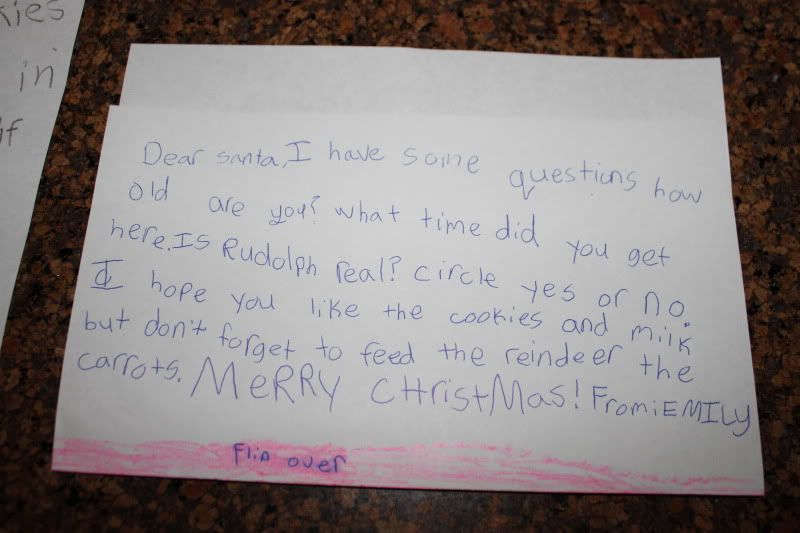 kies
in
if
Dear santa, I have some questions how
old are you? what time did you get
here. Is Rudolph real? circle yes or no.
I hope you like the cookies and milk
but don't forget to feed the reindeer the
carrots. MeRRY CHristMas! From: EMILY
Flip over